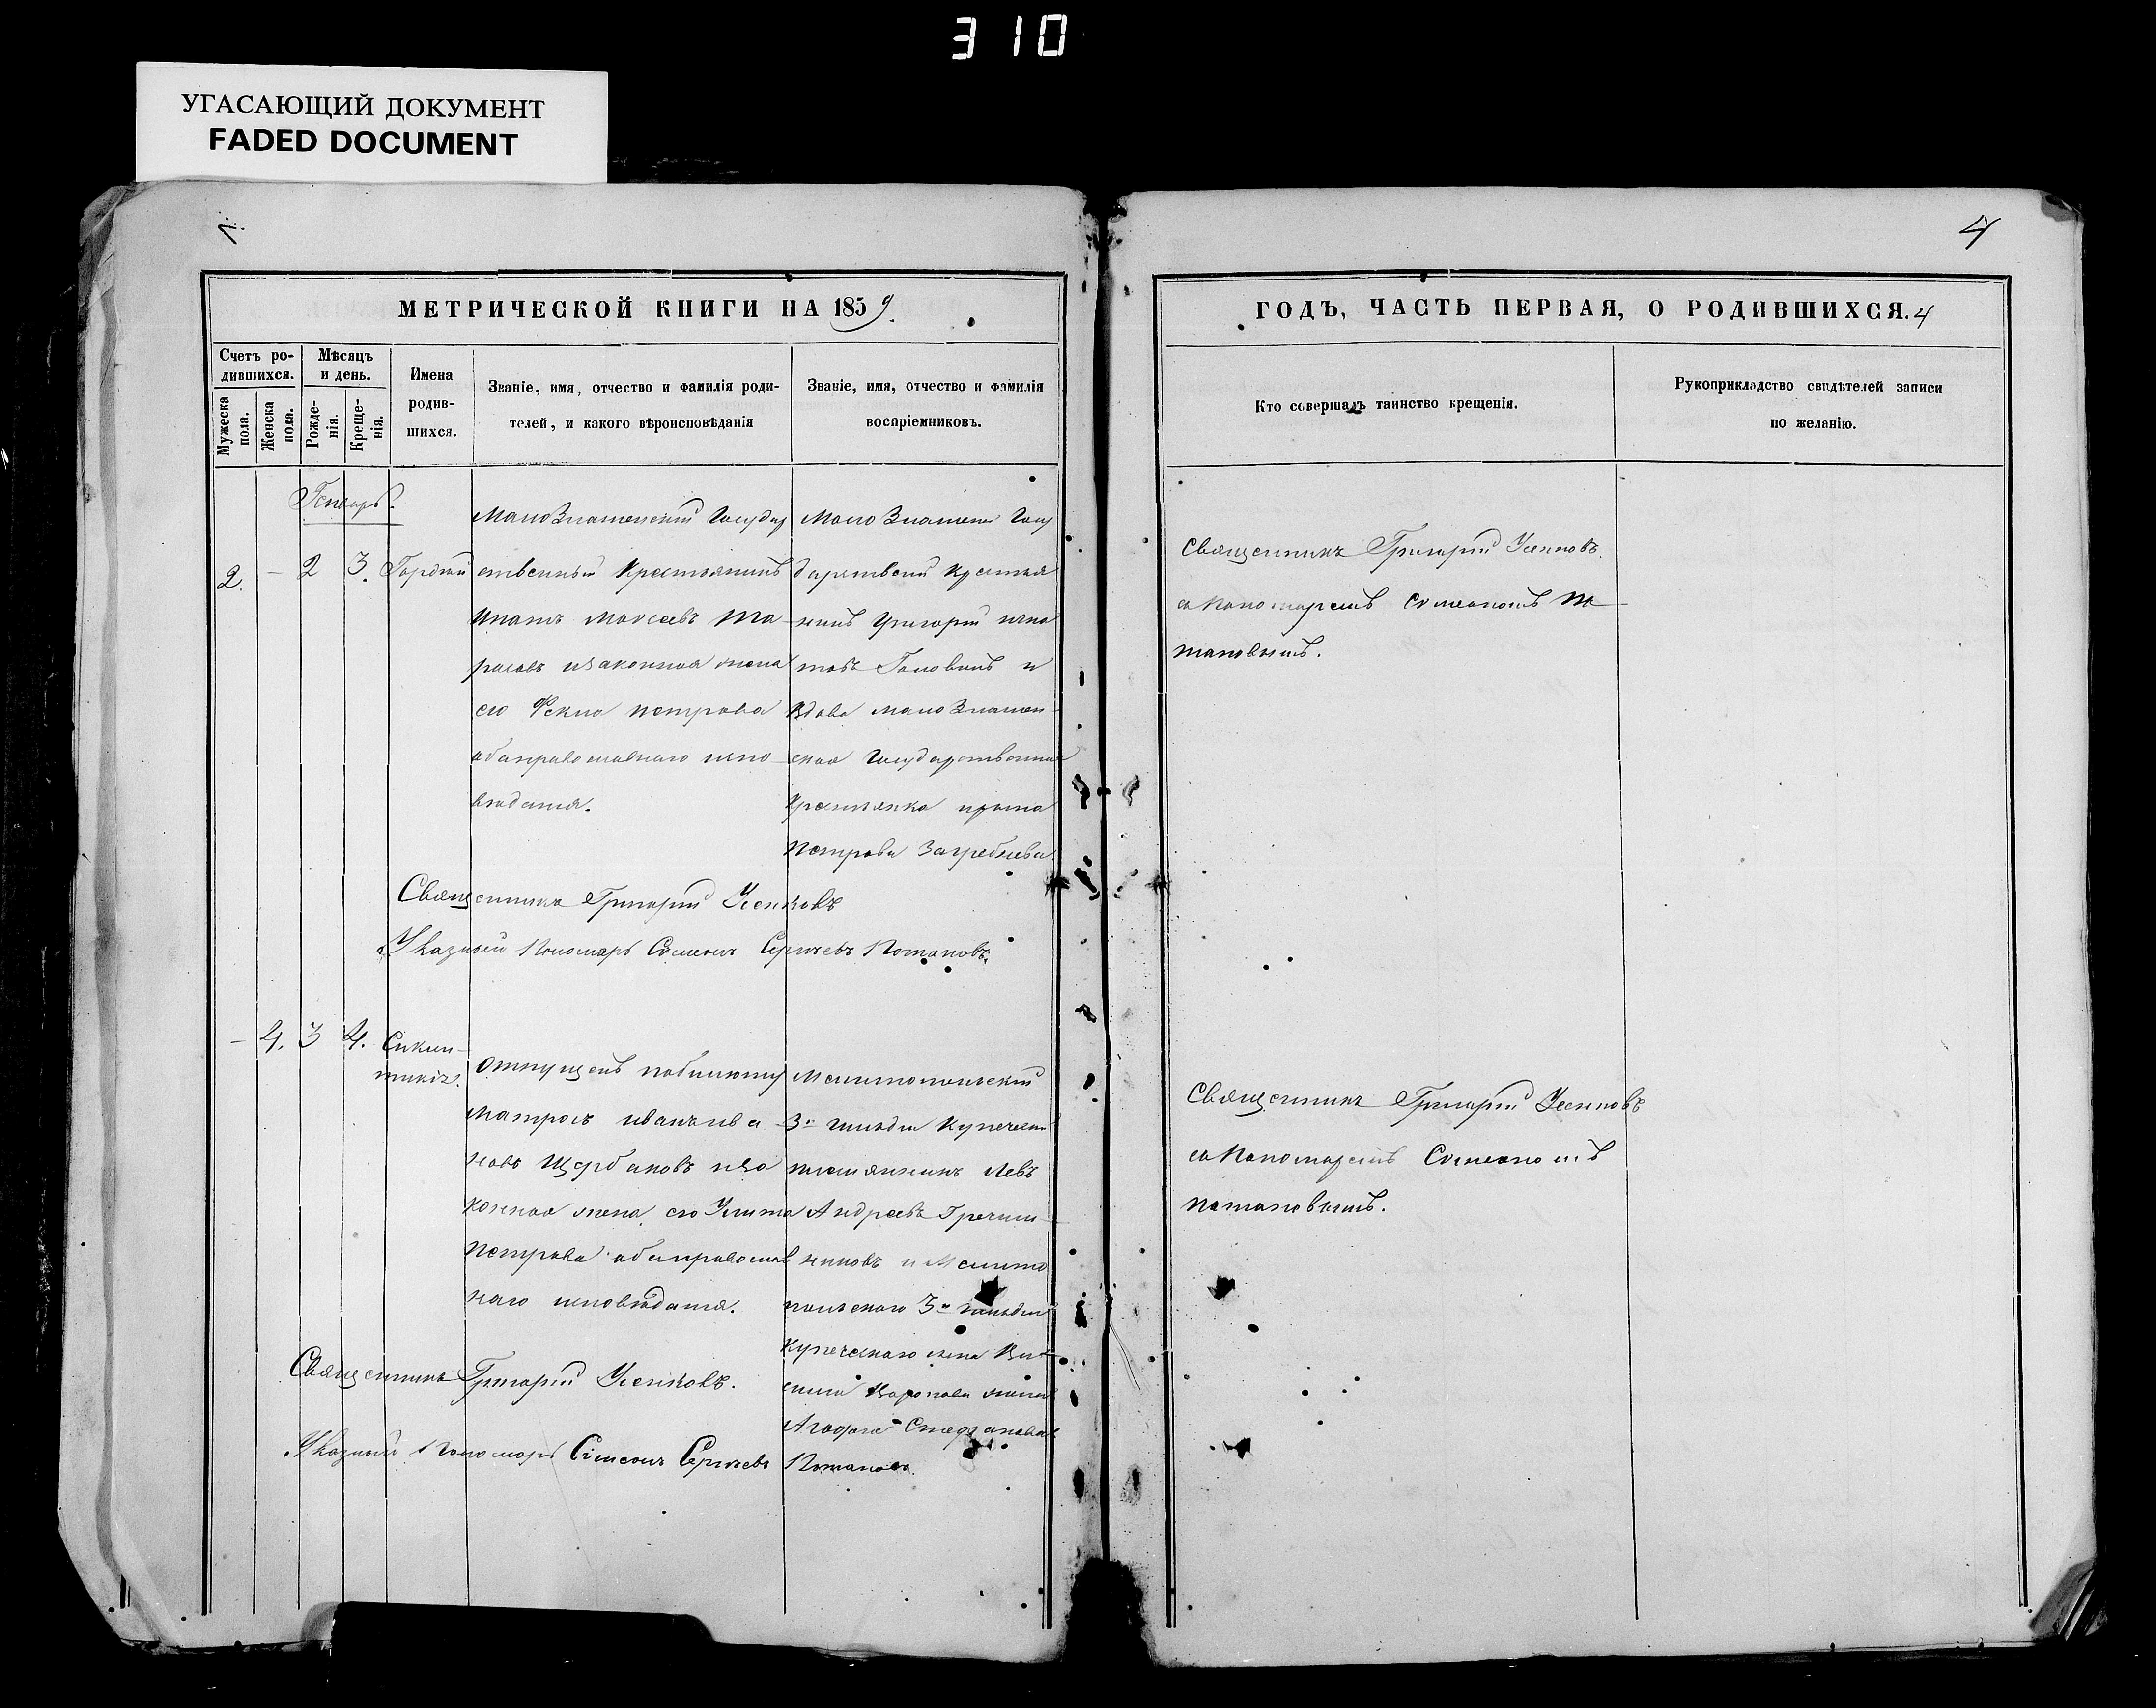 310
УГАСАЮЩИЙ ДОКУМЕНТ
FADED DOCUMENT
4
МЕТРИЧЕСКОЙ КНИГИ НА 1859.
Счетъ ро-
дившихся.
Мужеска
пола.
Женска
пола.
Мѣсяцъ
и день.
Рожде-
нія.
Креще-
нія.
Имена
родив-
шихся.
Званіе, имя, отчество и фамилія роди-
телей, и какого вѣроисповѣданія
Званіе, имя, отчество и фамилія
воспріемниковъ.
Генварь.
2. - 2 3. Гордій
МалоЗнаменскій Государ
ственный Крестьянинъ
Ипатъ Моисеевъ Та-
расовъ изаконная жена
его Фекла петрова
обаправославнаго испо-
вѣданія.
МалоЗнаменс Госу
дарствені Крестья
нинъ Григорій игна
товъ Головинъ и
Вдова малоЗнамен-
ская Государственная
Крестьянка
Петрова Загребнева
Священникъ Григорій Усенковъ
Указный Пономарь Симеонъ Сергѣевъ Потаповъ.
- 4. 3 4. Сикли-
тикія.
Отпущенъ побилету
Матросъ иванъ ива
новъ Щербаковъ иза
конная жена его Улита
Петрова обаправослав
наго исповѣданія.
Мелитопольскій
3й гильдіи Купеческій
племянникъ Левъ
Андреевъ Гречиш-
никовъ и Мелито
польскаго 3й гильдіи
Купеческаго сына Ва-
силія Карпова жена
Агафія Стефанова
Священникъ Григорій Усенковъ.
Указный Пономарь Симеонъ Сергѣевъ Потаповъ.
ГОДЪ, ЧАСТЬ ПЕРВАЯ, О РОДИВШИХСЯ. 4
Кто совершалъ таинство крещенія.
Рукоприкладство свидѣтелей записи
по желанію.
Священникъ Григорій Усенковъ
съ Пономаремъ Симеономъ По-
таповымъ.
Священникъ Григорій Усенковъ
съ Пономаремъ Симеономъ
потаповымъ.